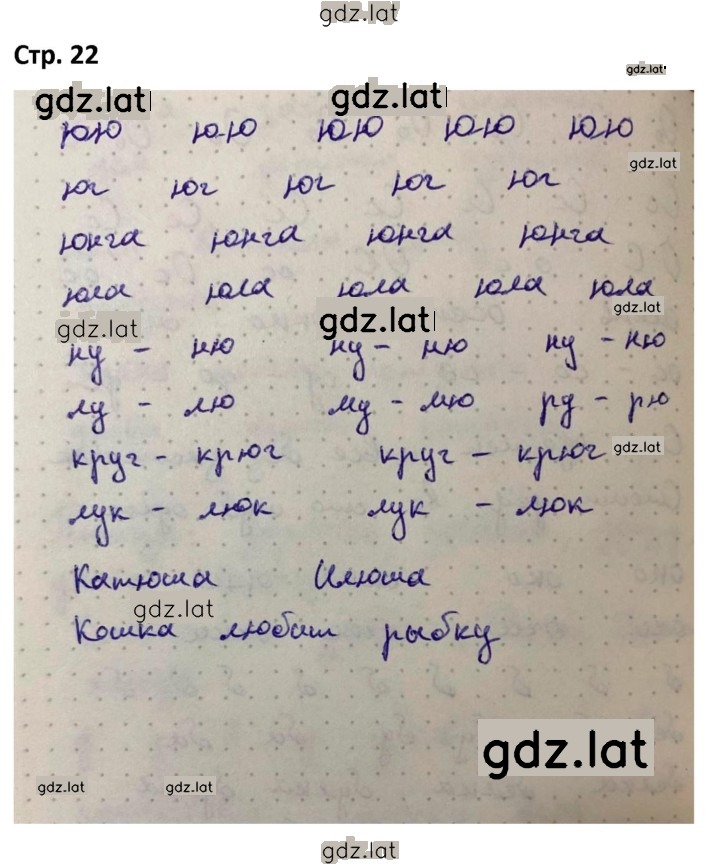 gdz.lat
Стр. 22
gdz.lat
gdz.lat gdz.lat
ЮЮ ЮЮ ЮЮ ЮЮ ЮЮ
gdz.lat
юг юг юг юг юг
юнга юнга юнга юнга
юла юла юла юла юла
gdz.lat gdz.lat gdz.lat
ну - ню ну - ню ну - ню
лу - лю му - мю ру - рю
круг - крюг круг - крюг gdz.lat
лук - люк лук - люк
Катюша Илюша
gdz.lat
Кошка любит рыбку
gdz.lat
gdz.lat gdz.lat
gdz.lat